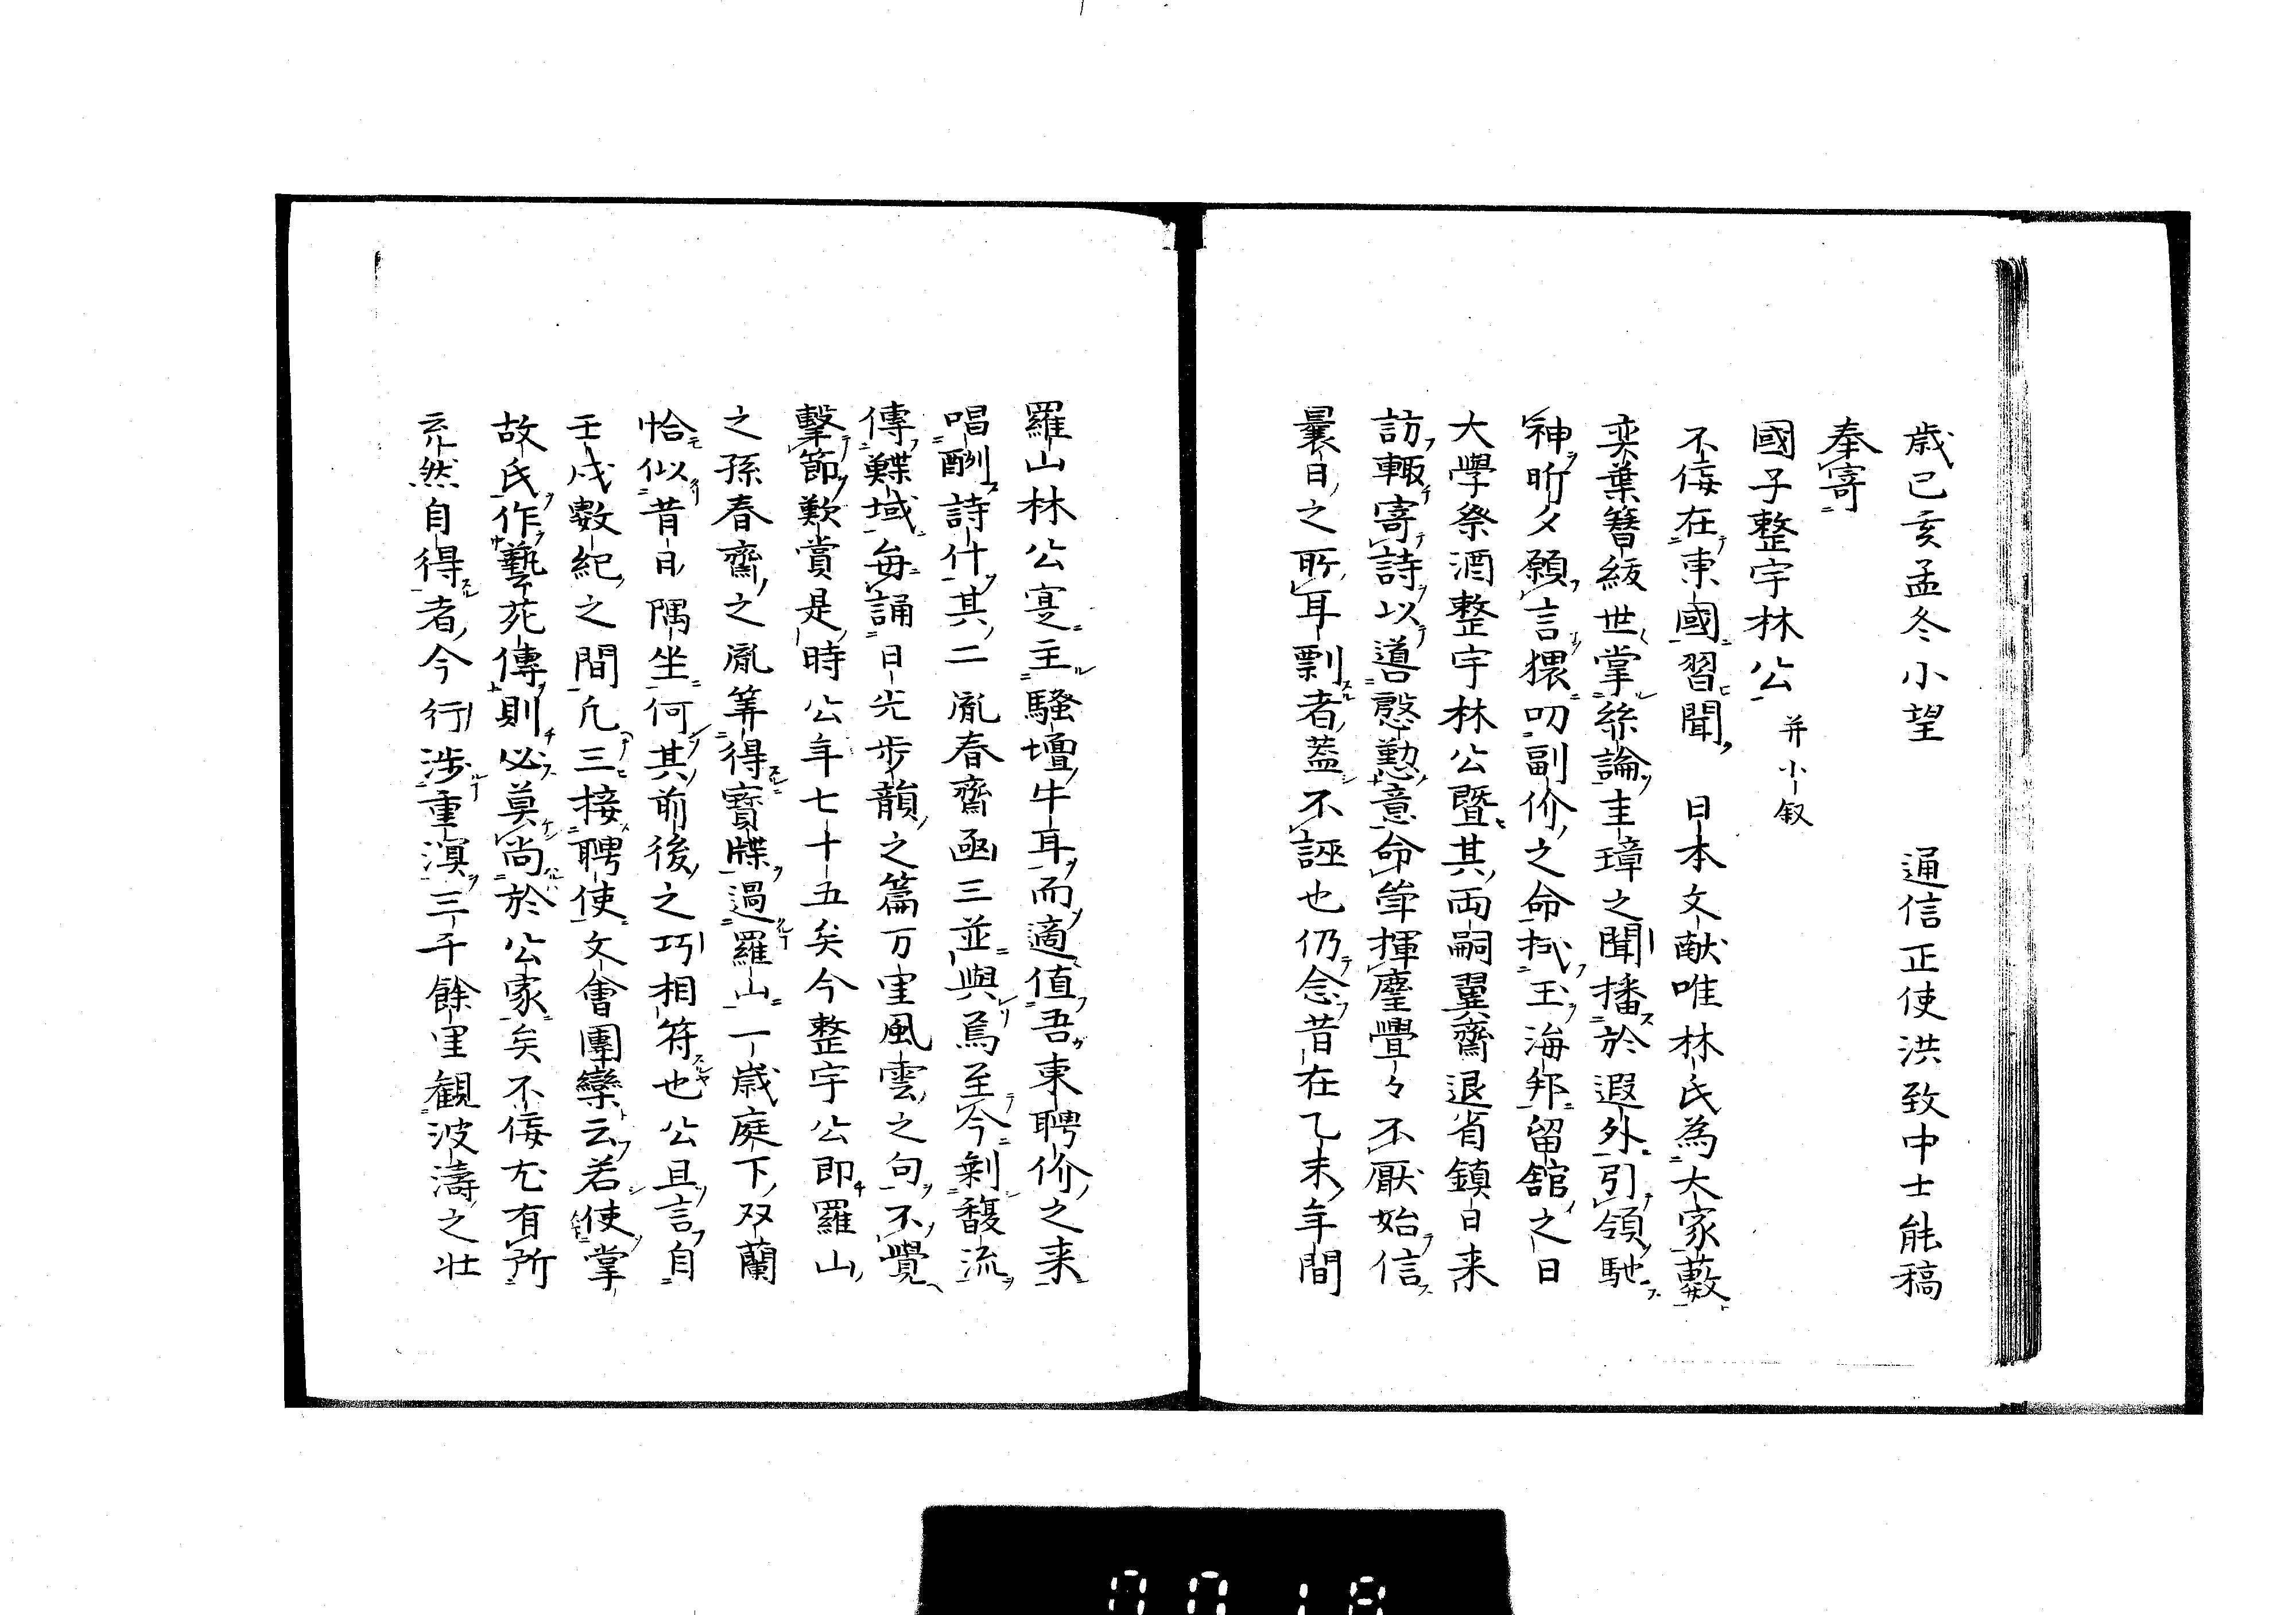 歳己亥孟冬小望　通信正使洪致中士能稿
奉寄
國子整宇林公　并小叙
不侫在東國習聞　日本文献唯林氏為大家藪
奕葉簪紱世掌絲論圭璋之聞播於遐外引領馳
神昕夕願言猥叨副价之命拭玉海邦留舘之日
大學祭酒整宇林公暨其両嗣翼齋退省鎮日来
訪輙寄詩以噵慇懃意命筆揮麈亹々不厭始信
曩日之所耳剽者蓋不誣也仍念昔在乙未年間
羅山林公寔主騷壇牛耳而適値吾東聘价之来
唱酬詩什其二胤春齋函三並與焉至今剩馥流
傳鰈域毎誦日光步韻之篇万里風雲之句不覺
擊節歎賞是時公年七十五矣今整宇公即羅山
之孫春齋之胤筭得寶牒過羅山一歳庭下双蘭
恰似昔日隅坐何其前後之巧相符也公且言自
壬戌數紀之間凢三接聘使文會團欒云若使掌
故氏作藝苑傳則必莫尚於公家矣不侫尤有所
充然自得者今行涉重溟三千餘里観波濤之壮